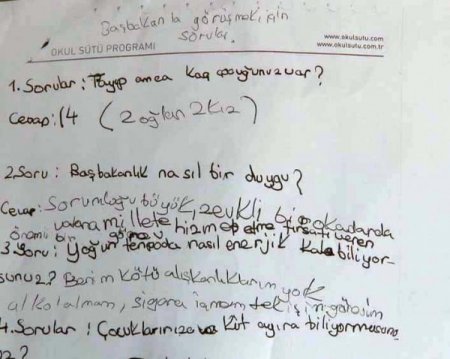 Başbakanla görüşmek için
sorular.
OKUL SÜTÜ PROGRAMI
www.okulsutu.com
www.okulsutu.com.tr
1. Sorular: Tayyip amca kaç çocuğunuz var?
Cevap: (4 (2 oğlan 2 kız)
2. Soru: Başbakanlık nasıl bir duygu?
Cevap: Sorumluğu büyük, zevkli bi okadarda
vatana millete hizmet etme fırsatı veren
önemli bir görev
3. Soru: Yoğun tempoda nasıl enerjik kala biliyor-
sunuz? Benim kötü alışkanlıklarım yok
alkol almam, sigara içmem tek işin
4. Sorular: Çocuklarınıza Vakit ayıra biliyormusunu
z?